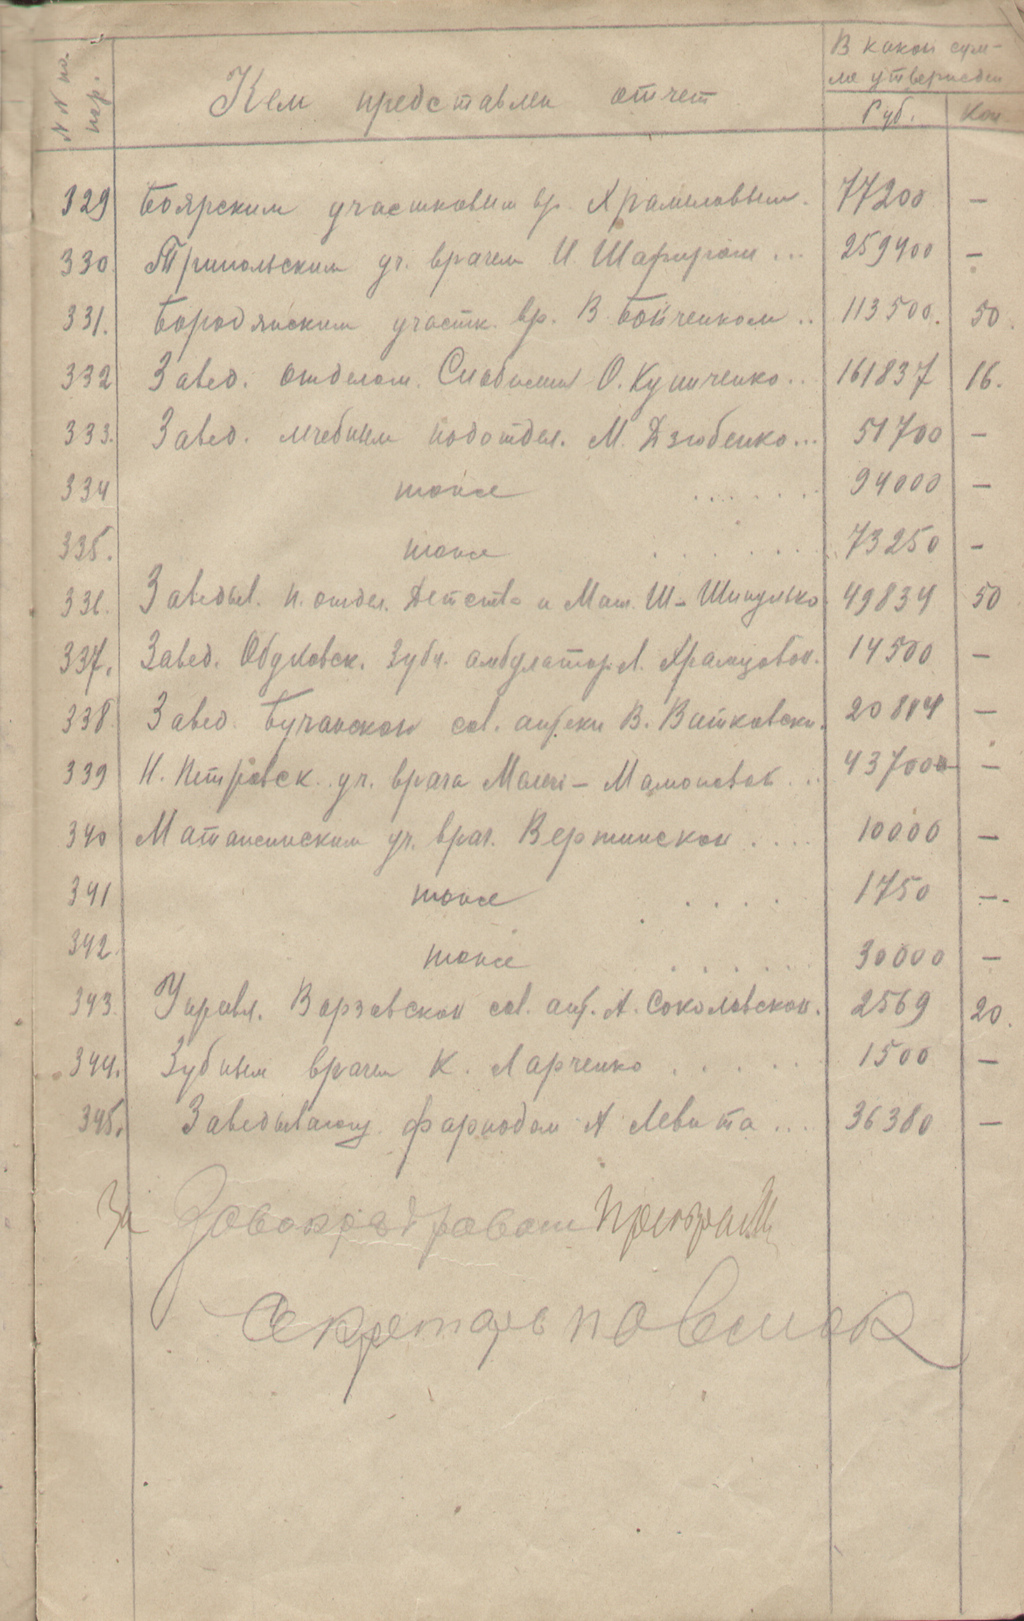 N N по пор.
Кем представлен отчет
В какой сум-
ме утвержден
Руб. Коп
329 Боярским участковым вр. Храмиловым. 77200 —
330 Трипольским уч. врачем И. Шафиром ... 259400 —
331. Бородянским участк. вр. В. Бойченком .. 113500. 50.
332 Завед. отделом О. Куниченко .. 161837 16.
333. Завед. лечебным подотдел. М. Дзюбенко ... 51700 —
334 тоже ...... 94000 —
335. тоже ...... 73250 —
336. Заведыв. п. отдел. Детство и Мат. Ш- Шипулько 49834 50
337. Завед. Обуховск. Зубн. амбулатор Л. Храмцовой. 14500 —
338 Завед. Бучанской сов. аптеки В. Витковски. —
339 Н. Петровск. уч. врача — Мамоновой ... —
340 уч. врач. Вертинской .... 10000 —
341 тоже .... 1750 —
342 тоже ...... 30000 —
343. Управл. Варзавской сов. апт. А. Соколовской. 2569 20.
344. Зубным врачем К. Ларченко ..... 1500 —
345. Заведывающ. А Левита ... 36380 —
За Завокрздравом
Секретарь